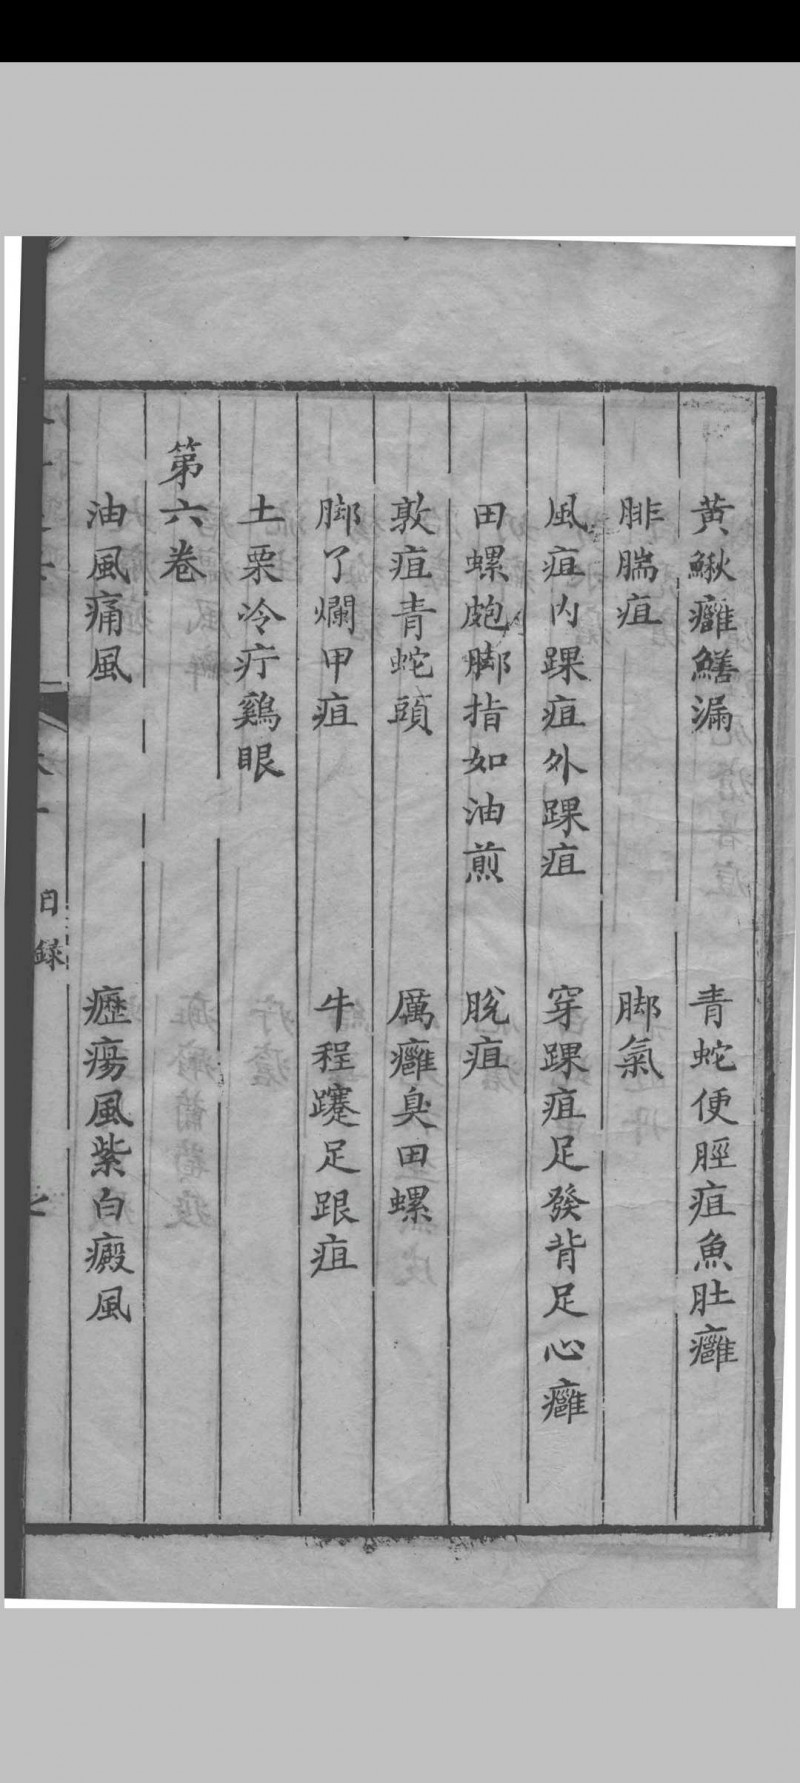 黄鰍癰鱔漏　青蛇便脛疽魚肚癰
腓腨疽　脚氣
風疽内踝疽外踝疽　穿踝疽足發背足心癰
田螺皰脚指如油煎　脫疽
敦疽青蛇頭　厲癰臭田螺
脚了爛甲疽　牛程蹇足跟疽
土栗冷疔鷄眼
第六卷
油風痛風　癧瘍風紫白癜風
目録